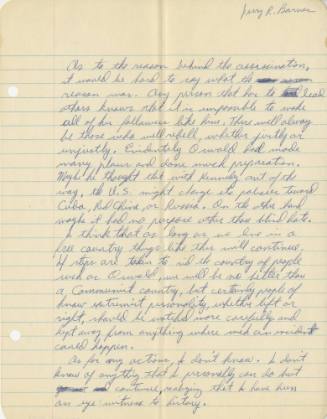 Jerry R. Barnes
As to the reason behind the assassination,
it would be hard to say what the
reason was. Any person that has to lead
others knows that it is impossible to make
all of his followers like him. There will always
be those who will rebell, whether justly or
unjustly. Evidentely Oswald had made
many plans and done much preparation.
Maybe he thought that with Kennedy out of the
way, the U.S. might change its policies toward
Cuba, Red China, or Russia. On the other hand
maybe it had no purpose other than blind hate.
I think that as long as we live in a
free country things like this will continue.
If steps are taken to rid the country of people
such as Oswald, we will be no better than
a Communist country, but certainly people of
known extremist personality, whether left or
right, should be watched more carefully and
kept away from anything where such an incident
could happen.
As for my actions, I don't know. I don't
know of anything that I personally can do but
continue, realizing that I have been
an eye witness to history.